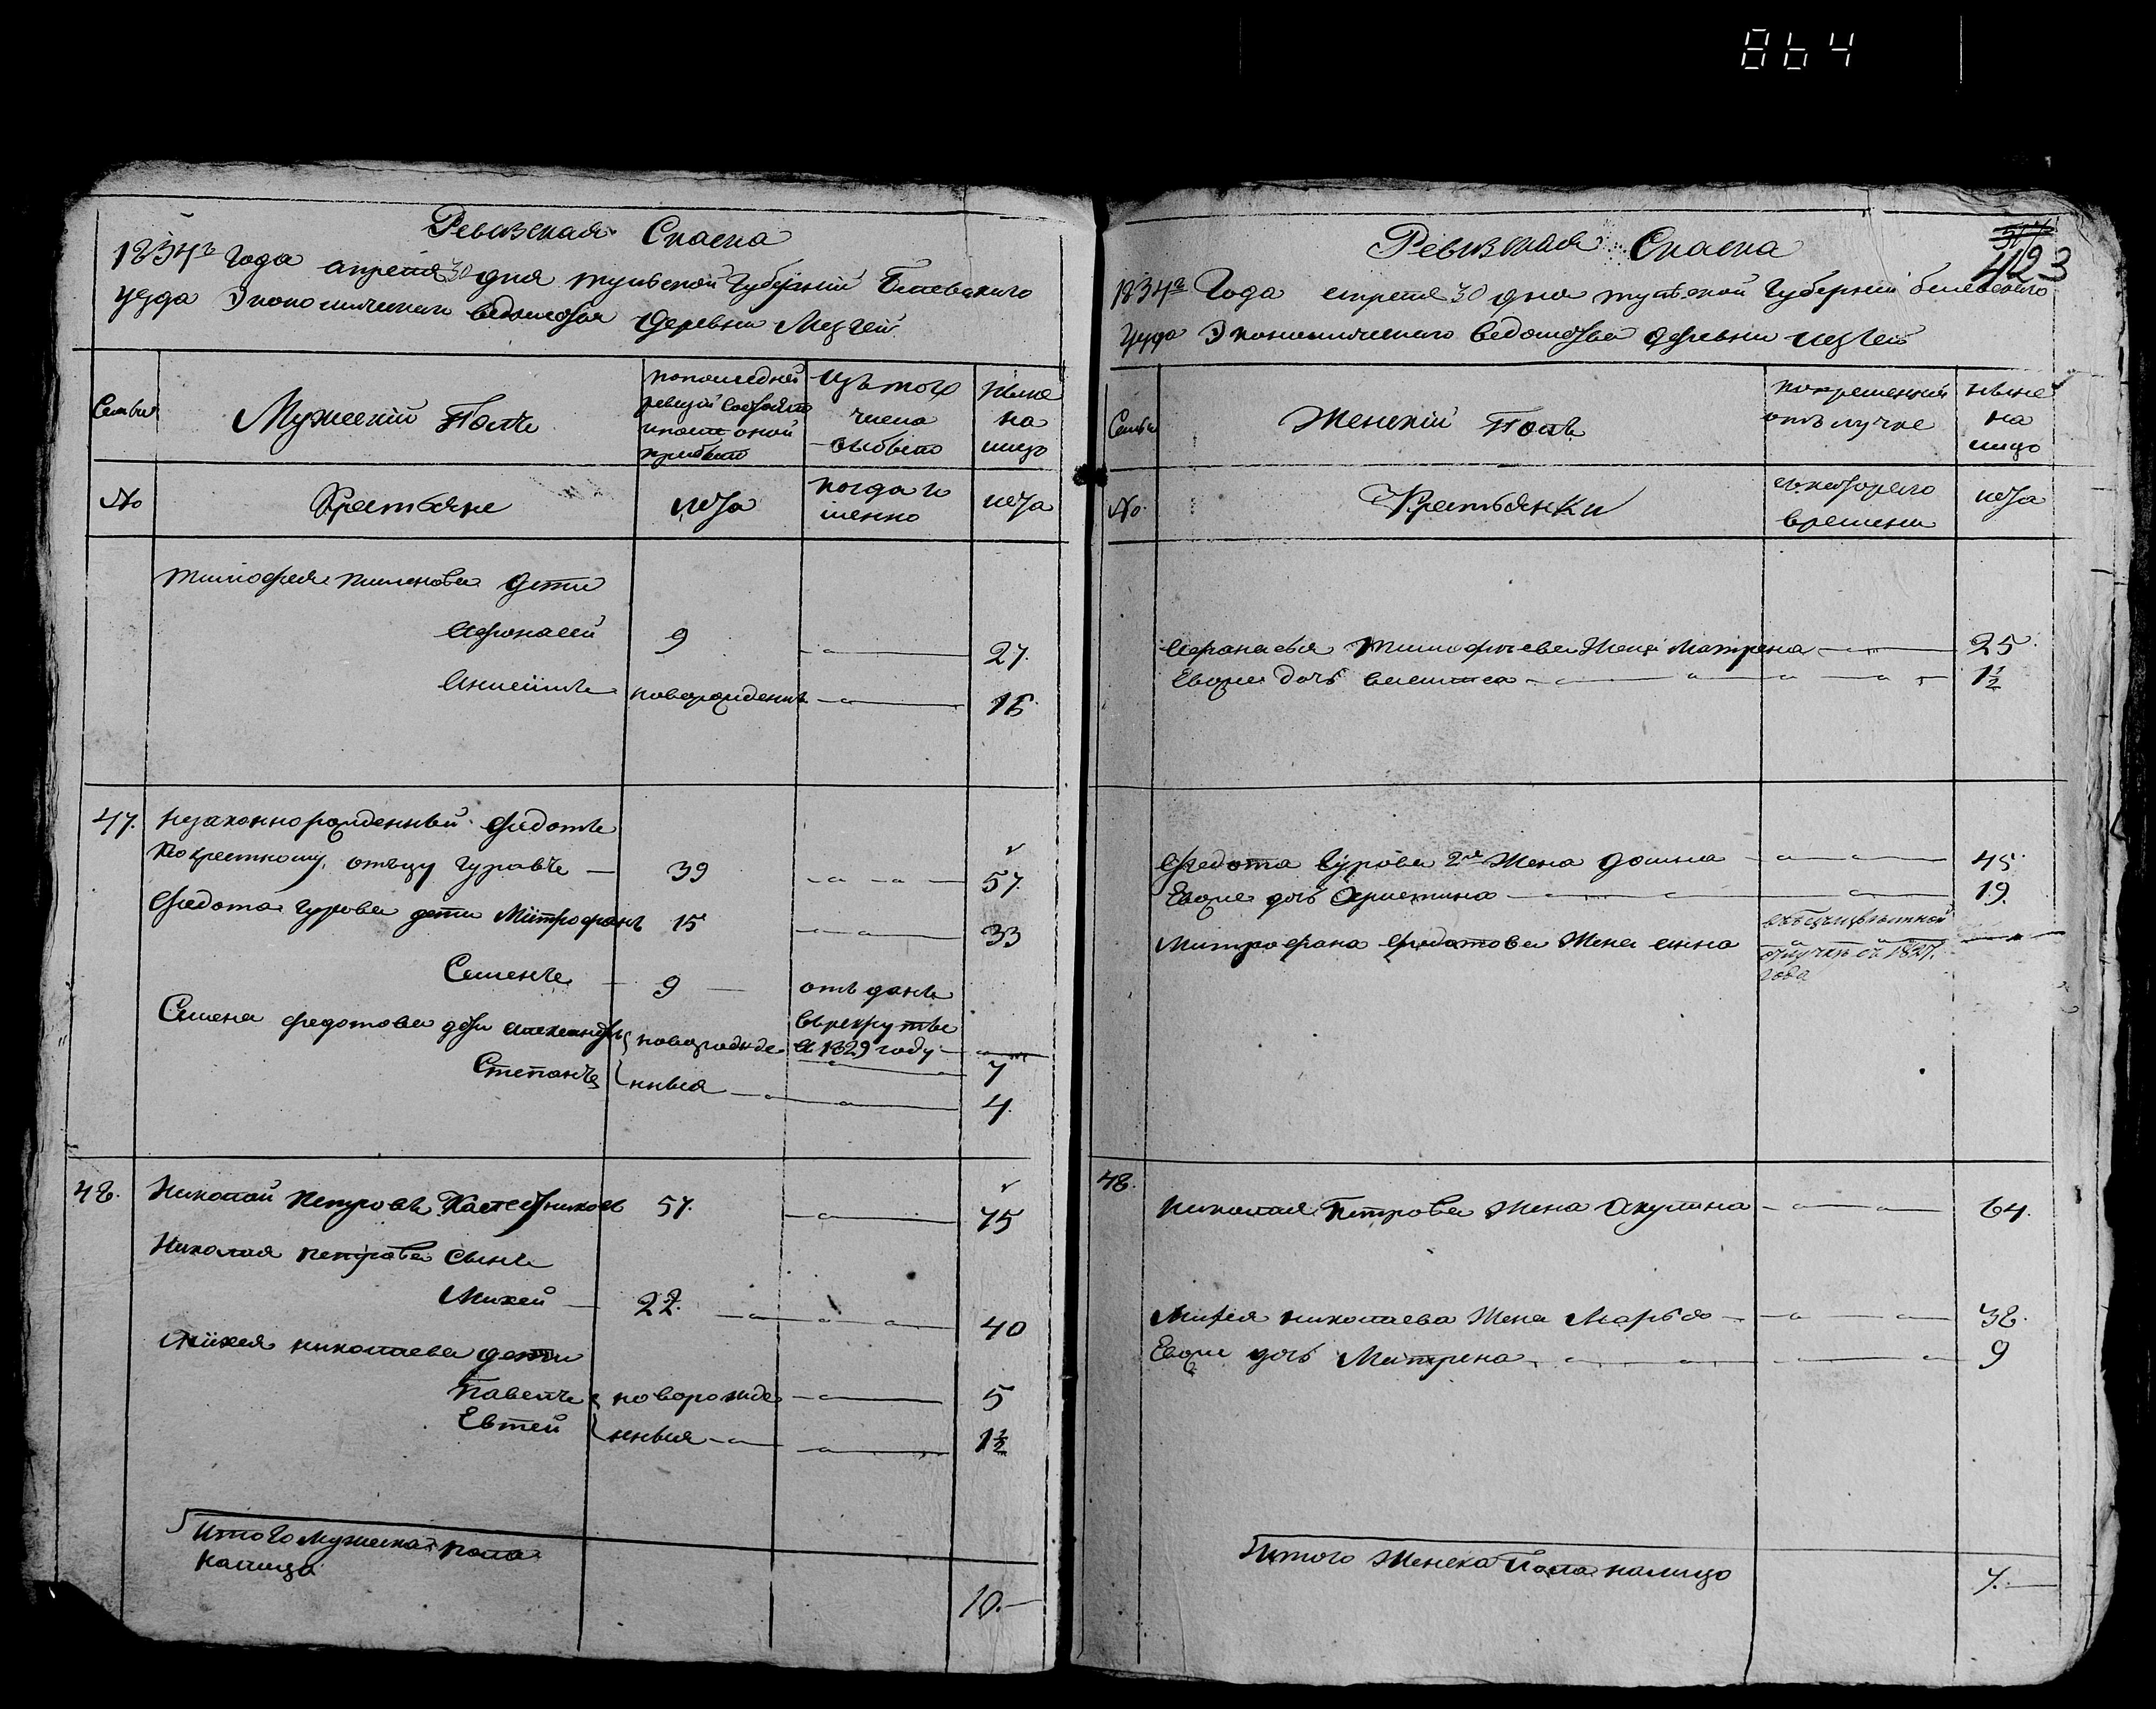 864
Ревизская Сказка
1834го Года апреля 30 дня тульской Губернии Белевского
уезда Экономическаго ведомства Деревни Мезгей
Семьи
Мужеский Полъ
попоследней
ревизии состояло
ипосле оной
прибыло
Изътого
числа
выбыло
Ныне
на
лицо
№
Крестьяне
лета
когда и
менно
лета
тимофея пименова дети
Афонасей 9 27.
Алексей новорожденъ 16
47. незаконнорожденный Федотъ
по крестному отъцу гуровъ 39 57.
Федота гурова дети Митрофанъ 15 33
Семенъ 9 отъданъ
врекруты
Семена федотова дети александръ новорожде в 1829 году 7
Степанъ нныя 4.
48. Николай Петровъ 57. 75
Николая петрова сынъ
Михей 22. 40
Михея николаева дети
Павелъ новорожде 5
Евтей нныя 1½
Итого мужеска пола
налицо
10.
423
Ревизская Сказка
1834го Года апреля 30 дня тульской Губернии белевского
уезда Экономическаго ведомства деревни мезгей
Семьи
Женский Полъ
вовременной
отълучке
ныне
на
лицо
№
Крестьянки
скоторого
времени
лета
Афанасья Тимофеева Жена Матрена 25
Евоже дочь 1½
Федота Гурова 2я Жена Домна 45
Евоже дочь Христина 19.
Митрофана Федотова Жена анна
отлучке съ 1827.
года
48.
Николая Петрова Жена Акулина 64.
Михея николаева Жена Марья 38.
Евоже дочь Матрена 9
Итого Женска Пола налицо 7.